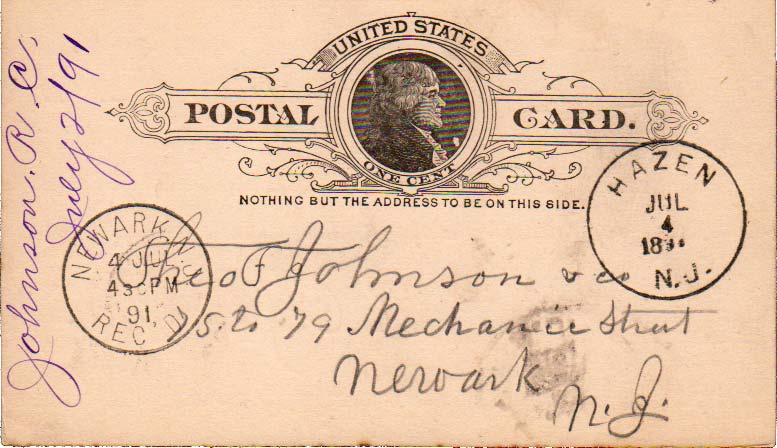 UNITED STATES
POSTAL CARD.
ONE CENT
NOTHING BUT THE ADDRESS TO BE ON THIS SIDE.
HAZEN
JUL
4
N.J.
NEWARK, N.J.
4 JUL
430PM
91
REC'D.
Theo F Johnson & co
75 to 79 Mechanic Street
Newark
N. J.
Johnson. R C.
July 2/91